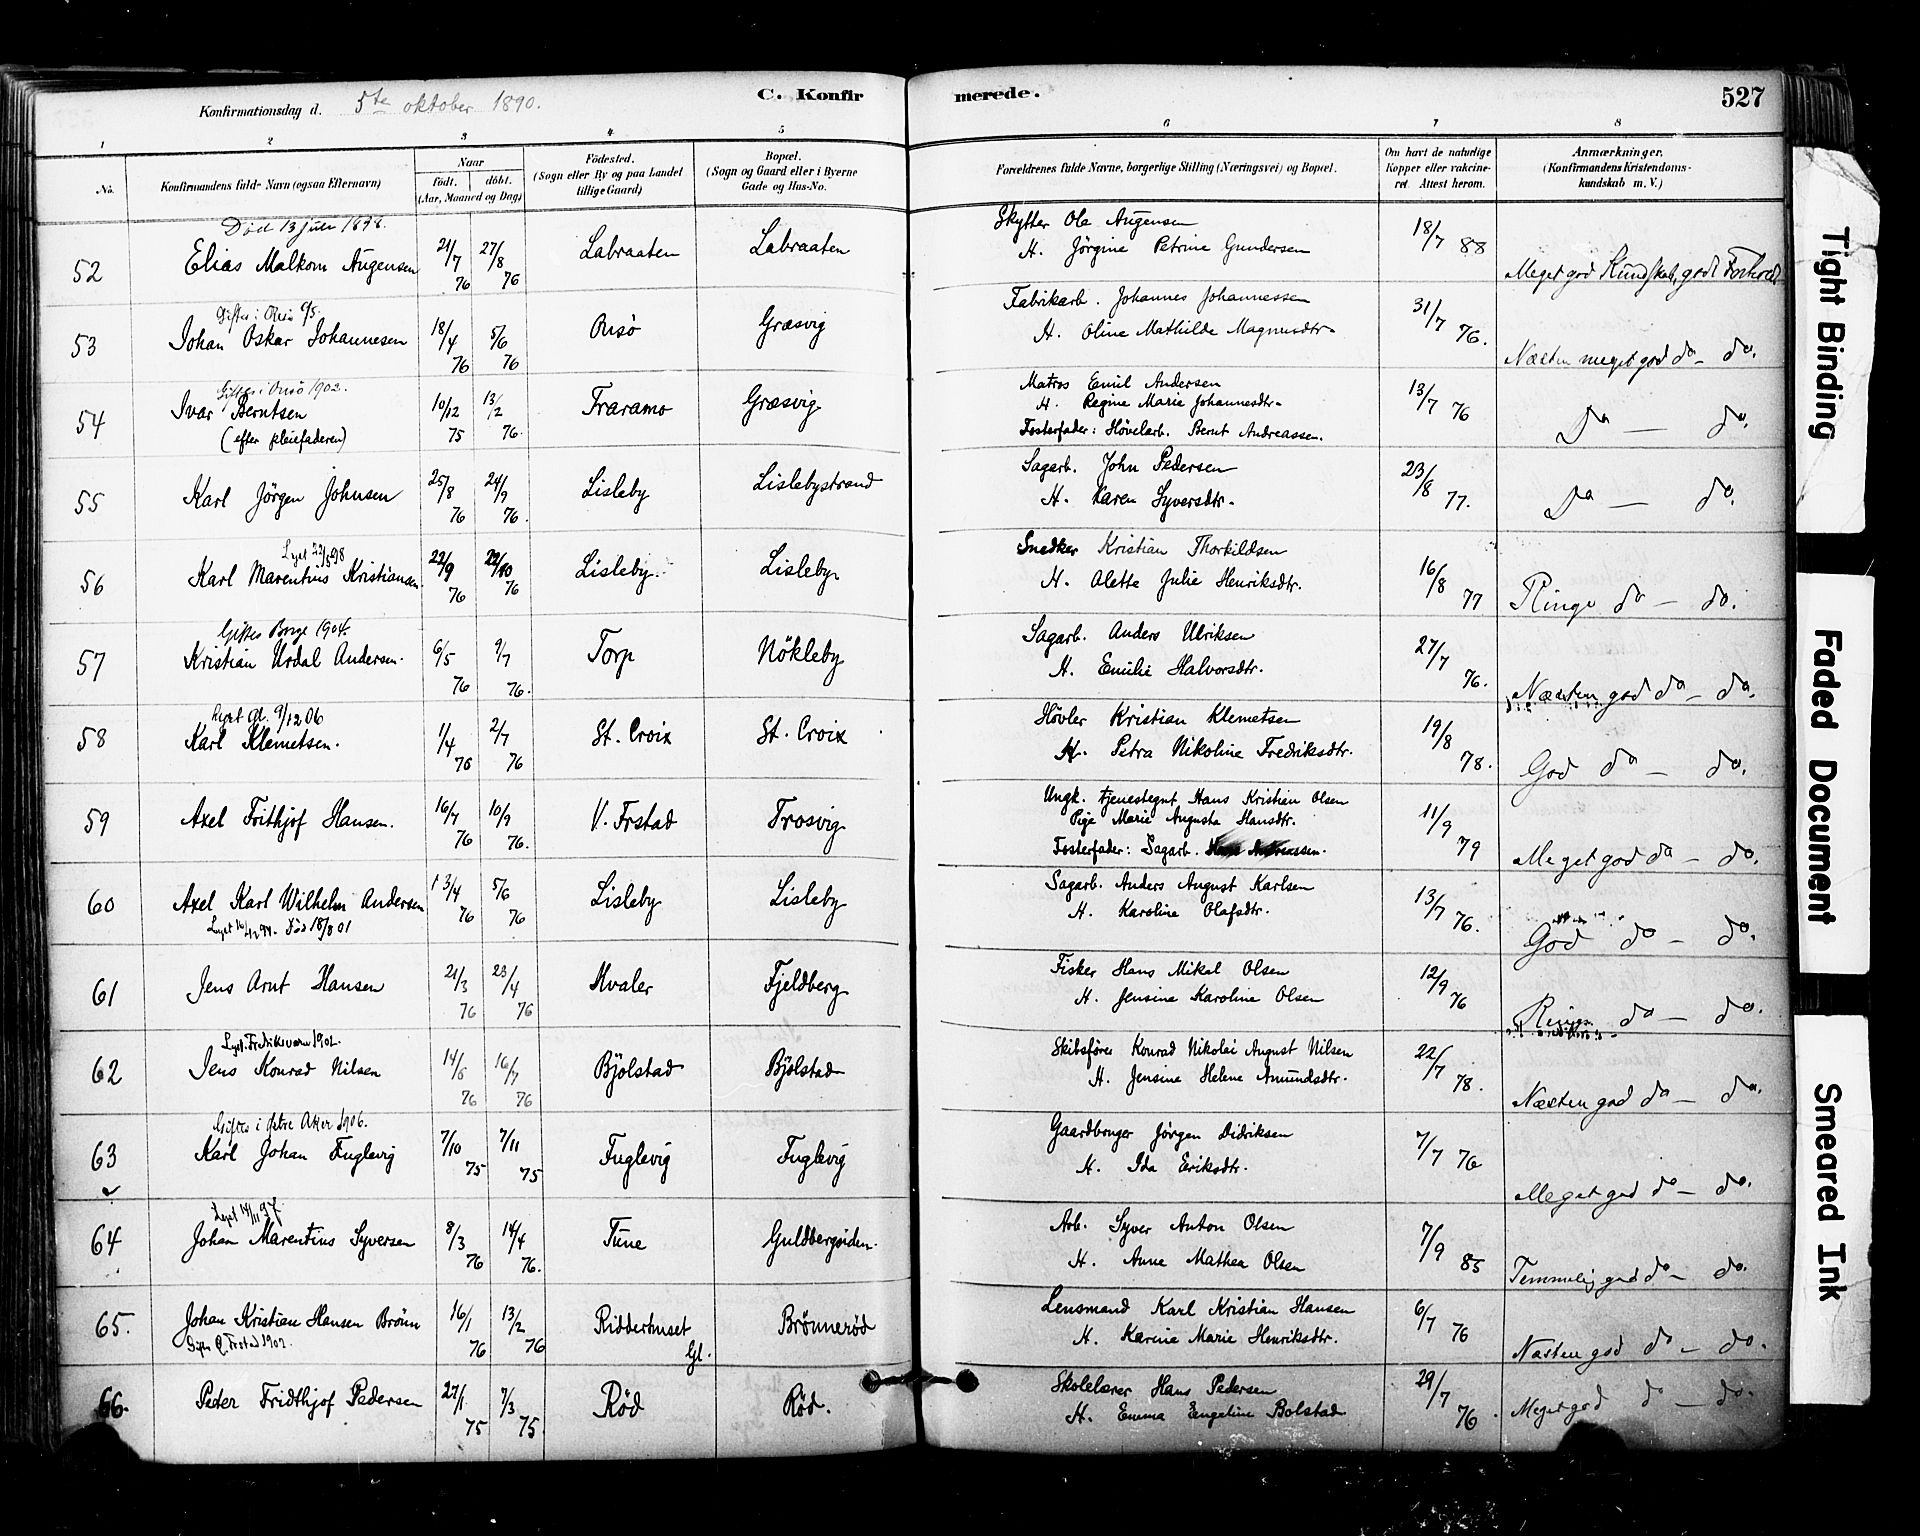 Konfirmationsdag d. 5te oktober 1890.
C. Konfirmerede.
527
1 2 3 4 5 6 7 8
No. Konfirmandens fulde Navn (ogsaa Efternavn) Naar födt. döbt. (Aar, Maaned og Dag) Födested. (Sogn eller By og paa Landet tillige Gaard) Bopæl. (Sogn og Gaard eller i Byerne Gade og Hus-No. Forældrenes fulde Navne, borgerlige Stilling (Næringsvei) og Bopæl. Om havt de naturlige Kopper eller vakcineret. Attest herom. Anmærkninger. (Konfirmandens Kristendomskundskab m. V.)
Død 13 juli
52 Elias Malkom Augensen 21/7 76 27/8 76 Labraaten Labraaten Skytter Ole Augensen 18/7 88
H. Jörgine Petrine Gundersen Meget god Kundskab, godt Forhold
Giftes i Onsö
53 Johan Oskar Johannesen 18/4 76 5/6 76 Onsö Græsvig Fabrikarb. Johannes Johannessen 31/7 76.
H. Oline Mathilde Magnusdtr. Næsten meget god do - do.
Giftes i Onsö 1902.
54 Ivar Berntsen 10/12 75 13/2 76. Traramo Græsvig Matros Emil Andersen 13/7 76
(efter pleiefaderen) H. Regine Marie Johannesdtr. Do - do.
Fosterfader: Hövelarb. Bernt Andreassen.
55 Karl Jörgen Johnsen 25/8 76 24/9 76. Lisleby Lislebystrand Sagarb. John Pedersen 23/8 77.
H. Karen Syversdtr. Do - do.
Lyst 22/5 98
56 Karl Marentius Kristiansen 22/9 76 22/10 76 Lisleby Lisleby Snedker Kristian Thorkildsen 16/8 77
H. Alette Julie Henriksdtr. Ringe do - do.
Giftes Borge 1904.
57 Kristian Urdal Andersen. 6/5 76 9/7 76. Torp Nökleby Sagarb. Anders Ulriksen 27/7 76.
H. Emilie Halvorsdtr. Næsten god do - do.
Lyst Gl. 9/12 06
58 Karl Klemetsen. 1/4 76 2/7 76 St. Croix St. Croix Hövler Kristian Klemetsen 19/8 78.
H. Petra Nikoline Fredriksdtr. God do - do.
59 Axel Frithjof Hansen. 16/7 76 10/9 76. V. Frstad Trosvig Ungk. tjenestegut Hans Kristian Olsen 11/9 79
Pige Marie Augusta Hansdtr. Meget god do - do.
Fosterfader: Sagarb.
60 Axel Karl Wilhelm Andersen 13/4 76 5/6 76 Lisleby Lisleby Sagarb. Anders August Karlsen 13/7 76.
H. Karoline Olafsdtr. God do - do.
Død 18/8 01
61 Jens Arnt Hansen 21/3 76 23/4 76 Hvaler Fjeldberg Fisker Hans Mikal Olsen 12/9 76
H. Jensine Karoline Olsen Ringe do - do.
Lyst. Fredriksværn 1902.
62 Jens Konrad Nilsen 14/6 76 16/7 76 Bjölstad Bjölstad Skibsförer Konrad Nikolai August Nilsen 22/7 78.
H. Jensine Helene Amundsdtr. Næsten god do - do.
Giftes i östre Aker 1906.
63 Karl Johan Fuglevig 7/10 75 7/11 75 Fuglevig Fuglevig Gaardbruger Jörgen Didriksen 7/7 76
H. Ida Eriksdtr. Meget god do - do.
Lyst 14/11 97
64 Johan Marentius Syversen 8/3 76 14/4 76. Tune Guldbergsiden. Arb. Syver Anton Olsen 7/9 85
H. Anne Mathea Olsen Temmelig god do - do.
65. Johan Kristian Hansen Brönn 16/1 76 13/2 76 Ridderhuset Gl. Brönneröd Lensmand Karl Kristian Hansen 6/7 76
Frstad 1902. H. Karine Marie Henriksdtr. Næsten god do - do.
66. Peter Fridthjof Pedersen 27/1 75 7/3 75 Röd Röd. Skolelærer Hans Pedersen 29/7 76.
H. Emma Engeline Bolstad Meget god do - do.
Tight Binding
Faded Document
Smeared Ink